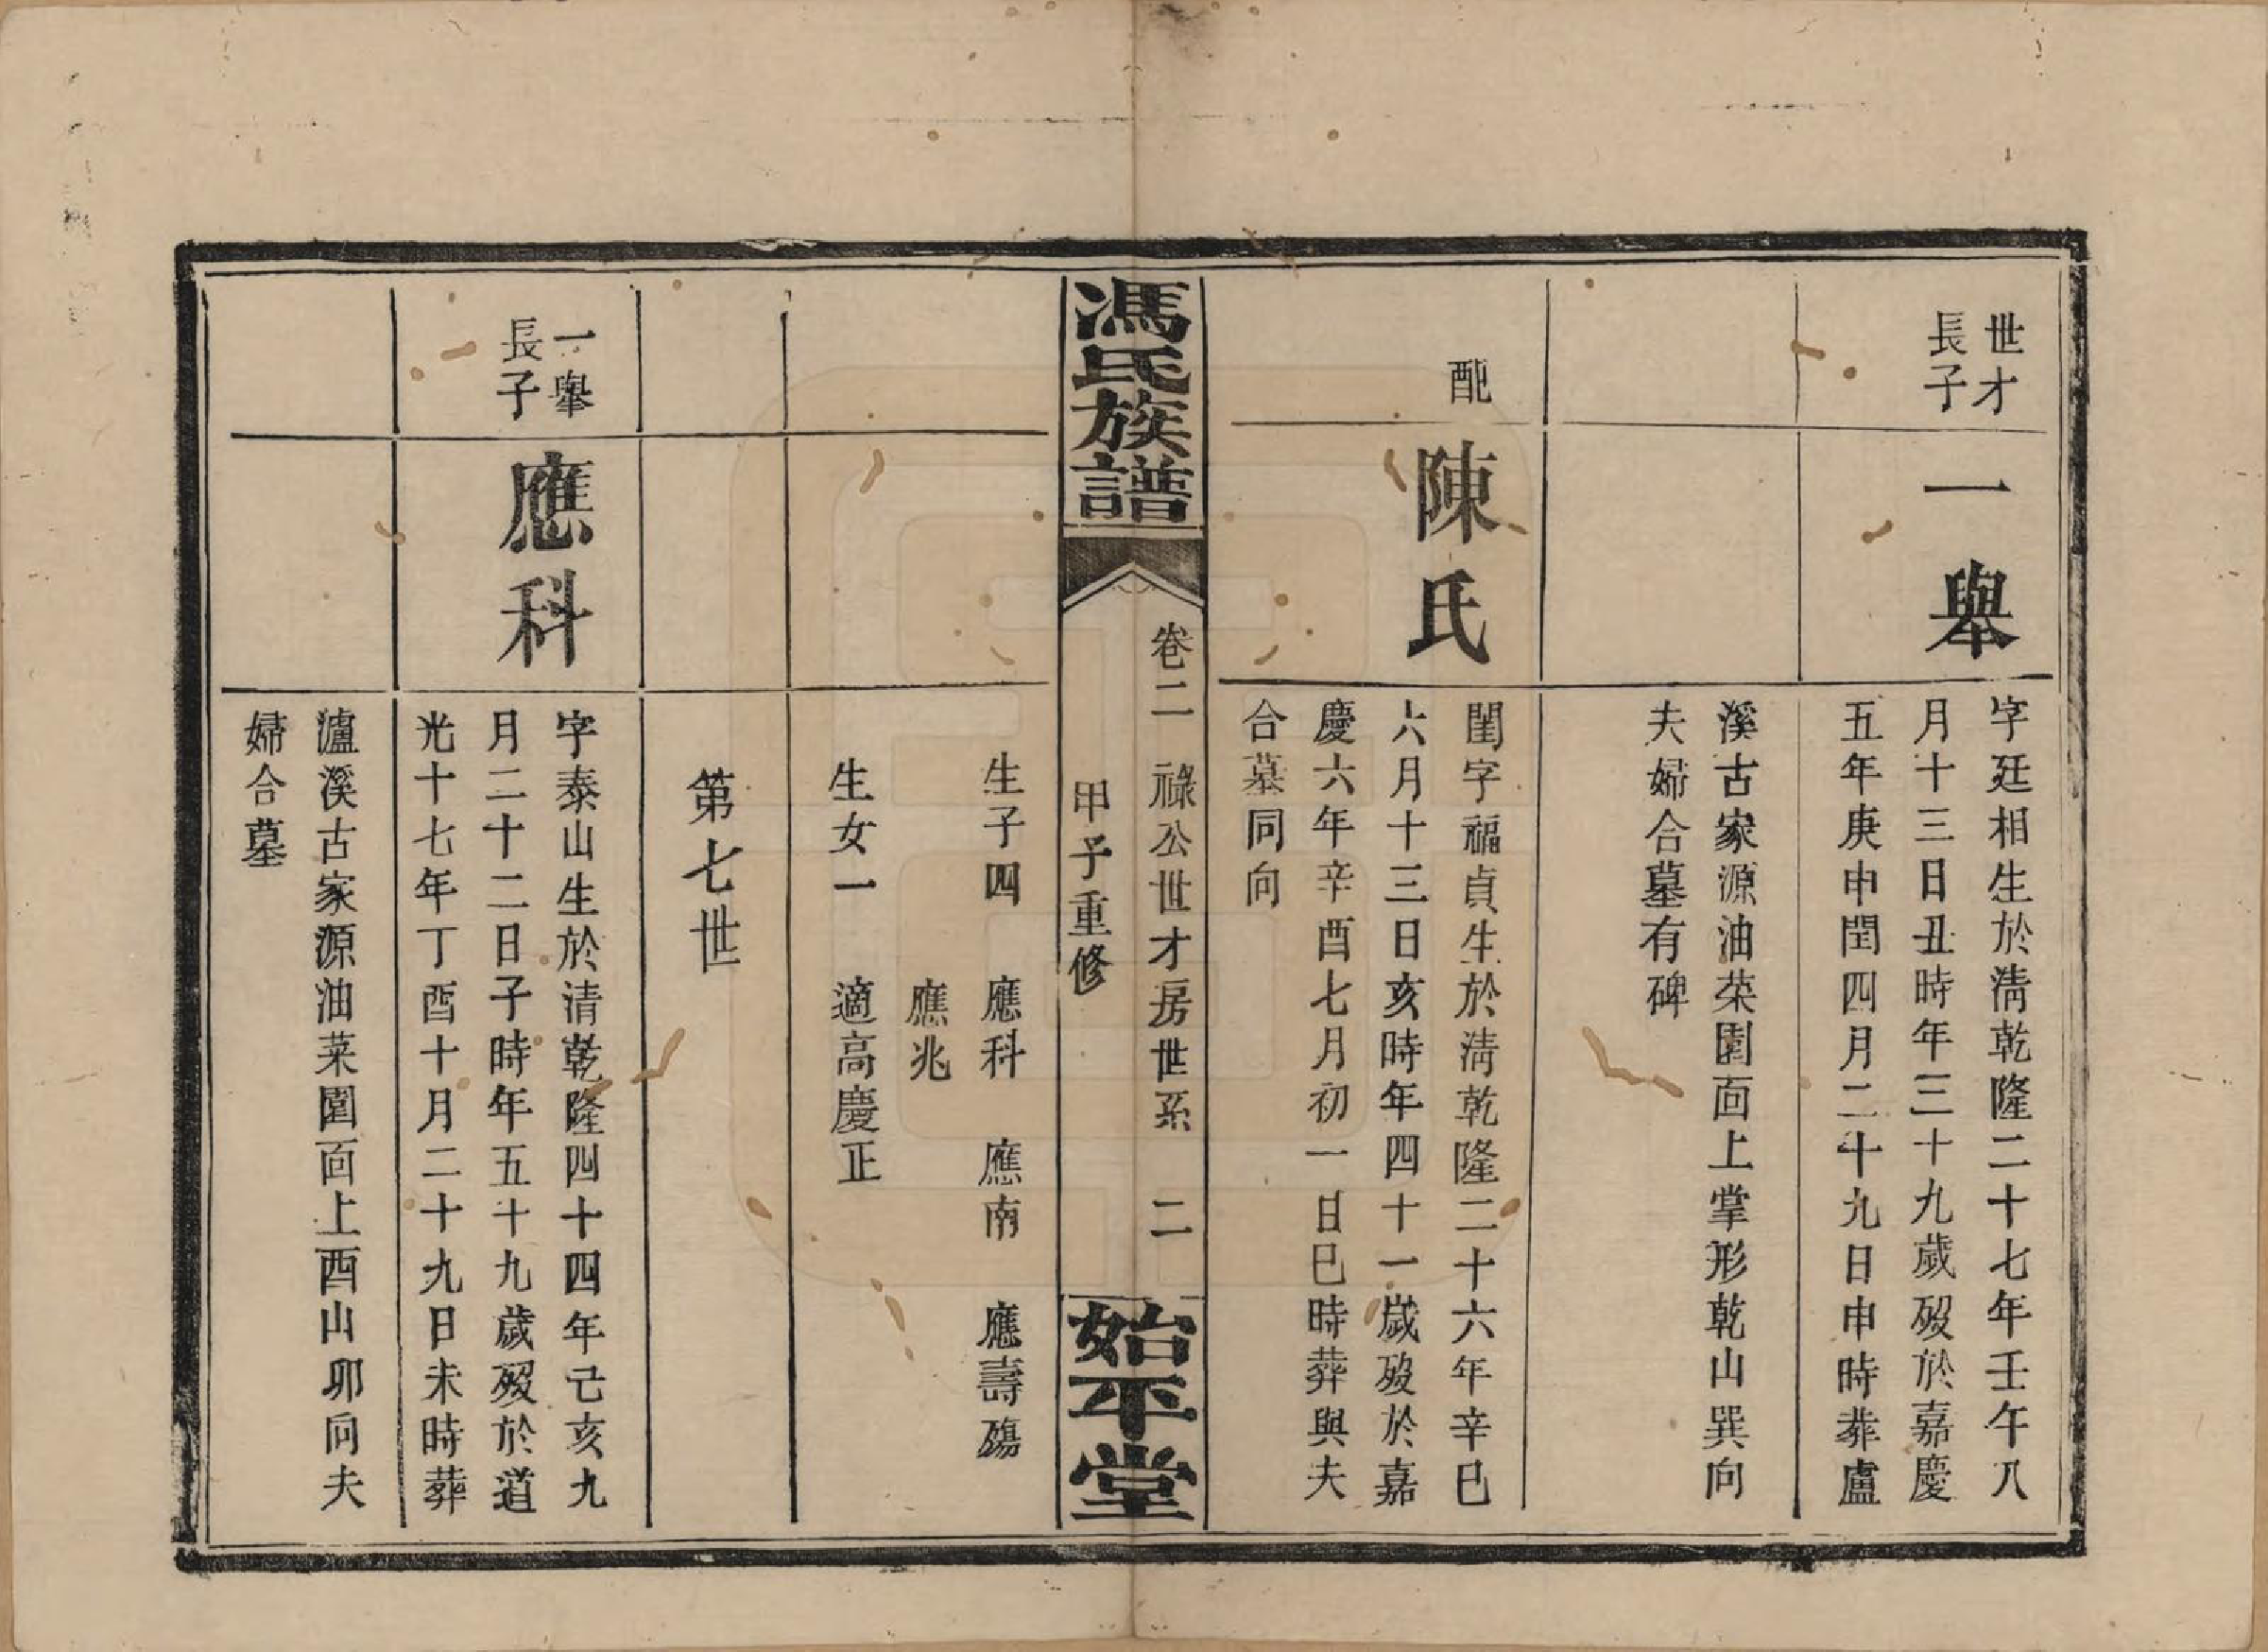 世才
長子
一舉
字廷相生於淸乾隆二十七年壬午八
月十三日丑時年三十九歲歿於嘉慶
五年庚申閏四月二十九日申時葬盧
溪古家源油菜園面上掌形乾山巽向
夫婦合墓有碑
配
陳氏
閨字福貞生於淸乾隆二十六年辛巳
六月十三日亥時年四十一歲歿於嘉
慶六年辛酉七月初一日巳時葬與夫
合墓同向
馮氏族譜
卷二 祿公世才房世系 二
甲子重修
始平堂
生子四 應科 應南 應壽殤
應兆
生女一 適高慶正
第七世
一舉
長子
應科
字泰山生於清乾隆四十四年己亥九
月二十二日子時年五十九歲歿於道
光十七年丁酉十月二十九日未時葬
瀘溪古家源油菜園面上酉山卯向夫
婦合墓